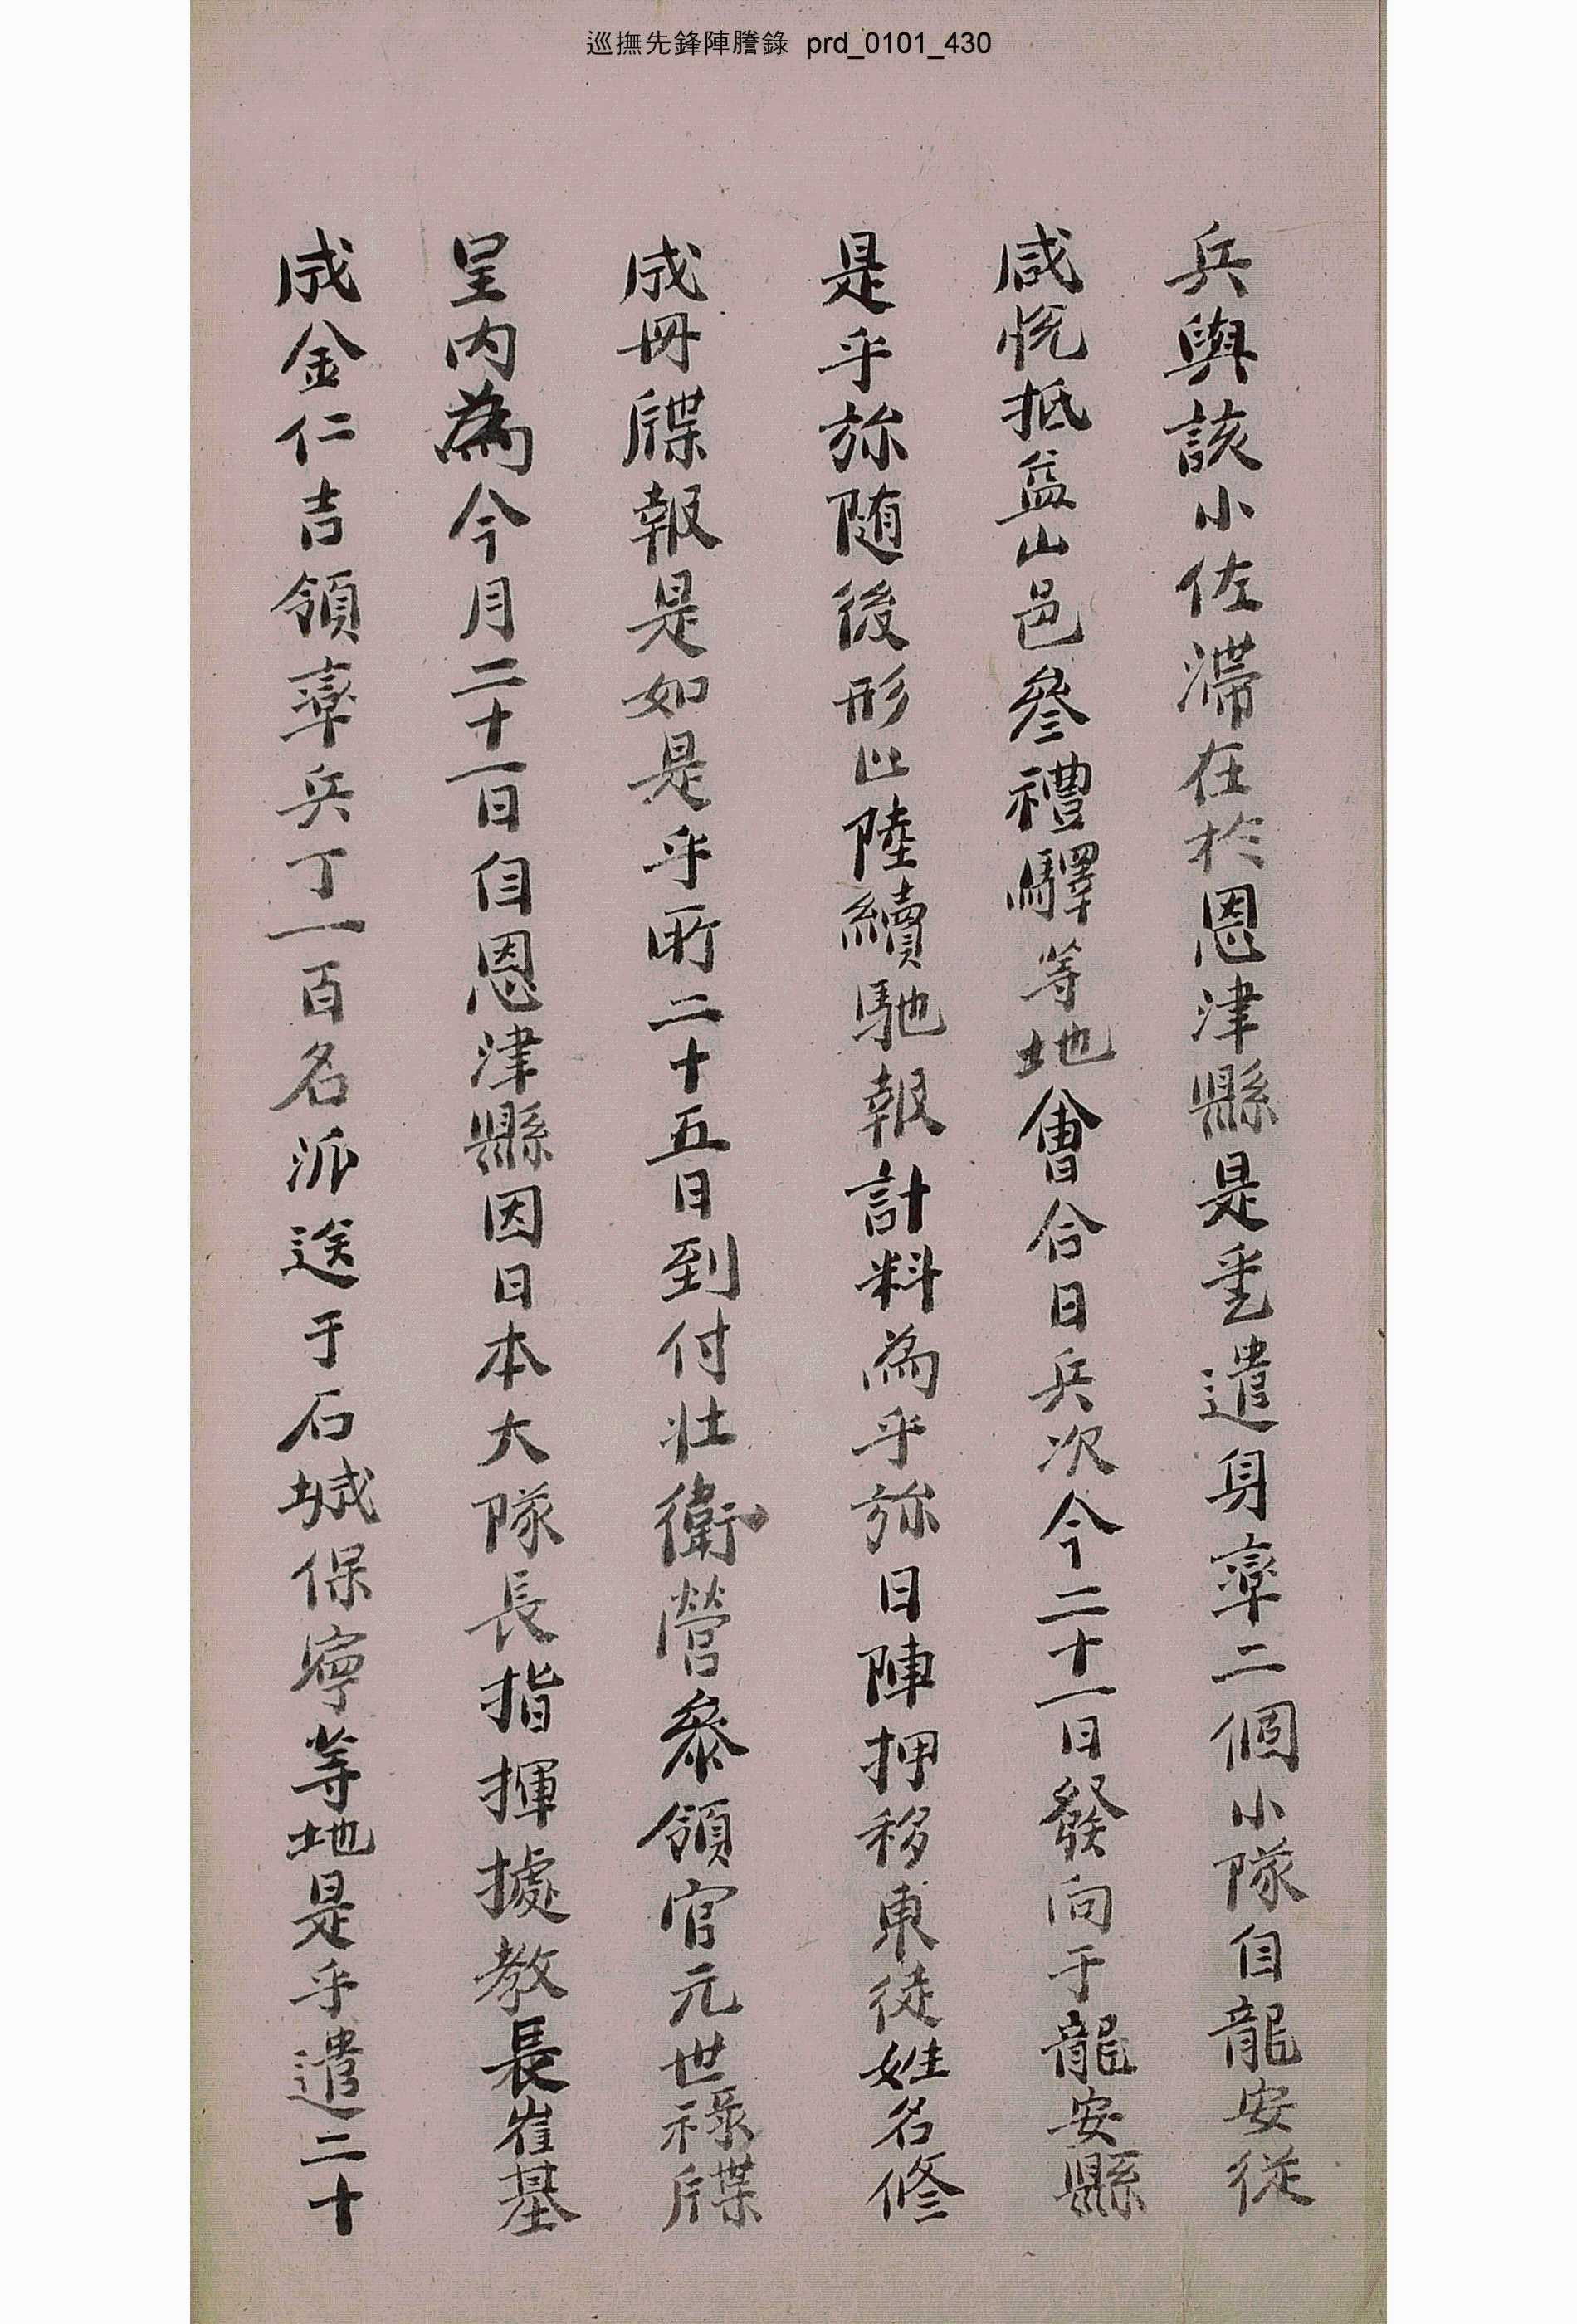 巡撫先鋒陣謄錄 prd_0101_430
兵與該小佐滯在於恩津縣是乎㫆遣身率二個小隊自龍安從
咸悅抵益山邑參禮驛等地會合日兵次今二十一日發向于龍安縣
是乎旀随後形止陸續馳報計料為乎旀日陣押移東徒姓名修
成冊牒報是如是乎所二十五日到付壯衛營叅領官元世祿牒
呈內為今月二十一日自恩津縣因日本大隊長指揮據教長崔基
成金仁吉領率兵丁一百名派送于石城保寧等地是乎遣二十